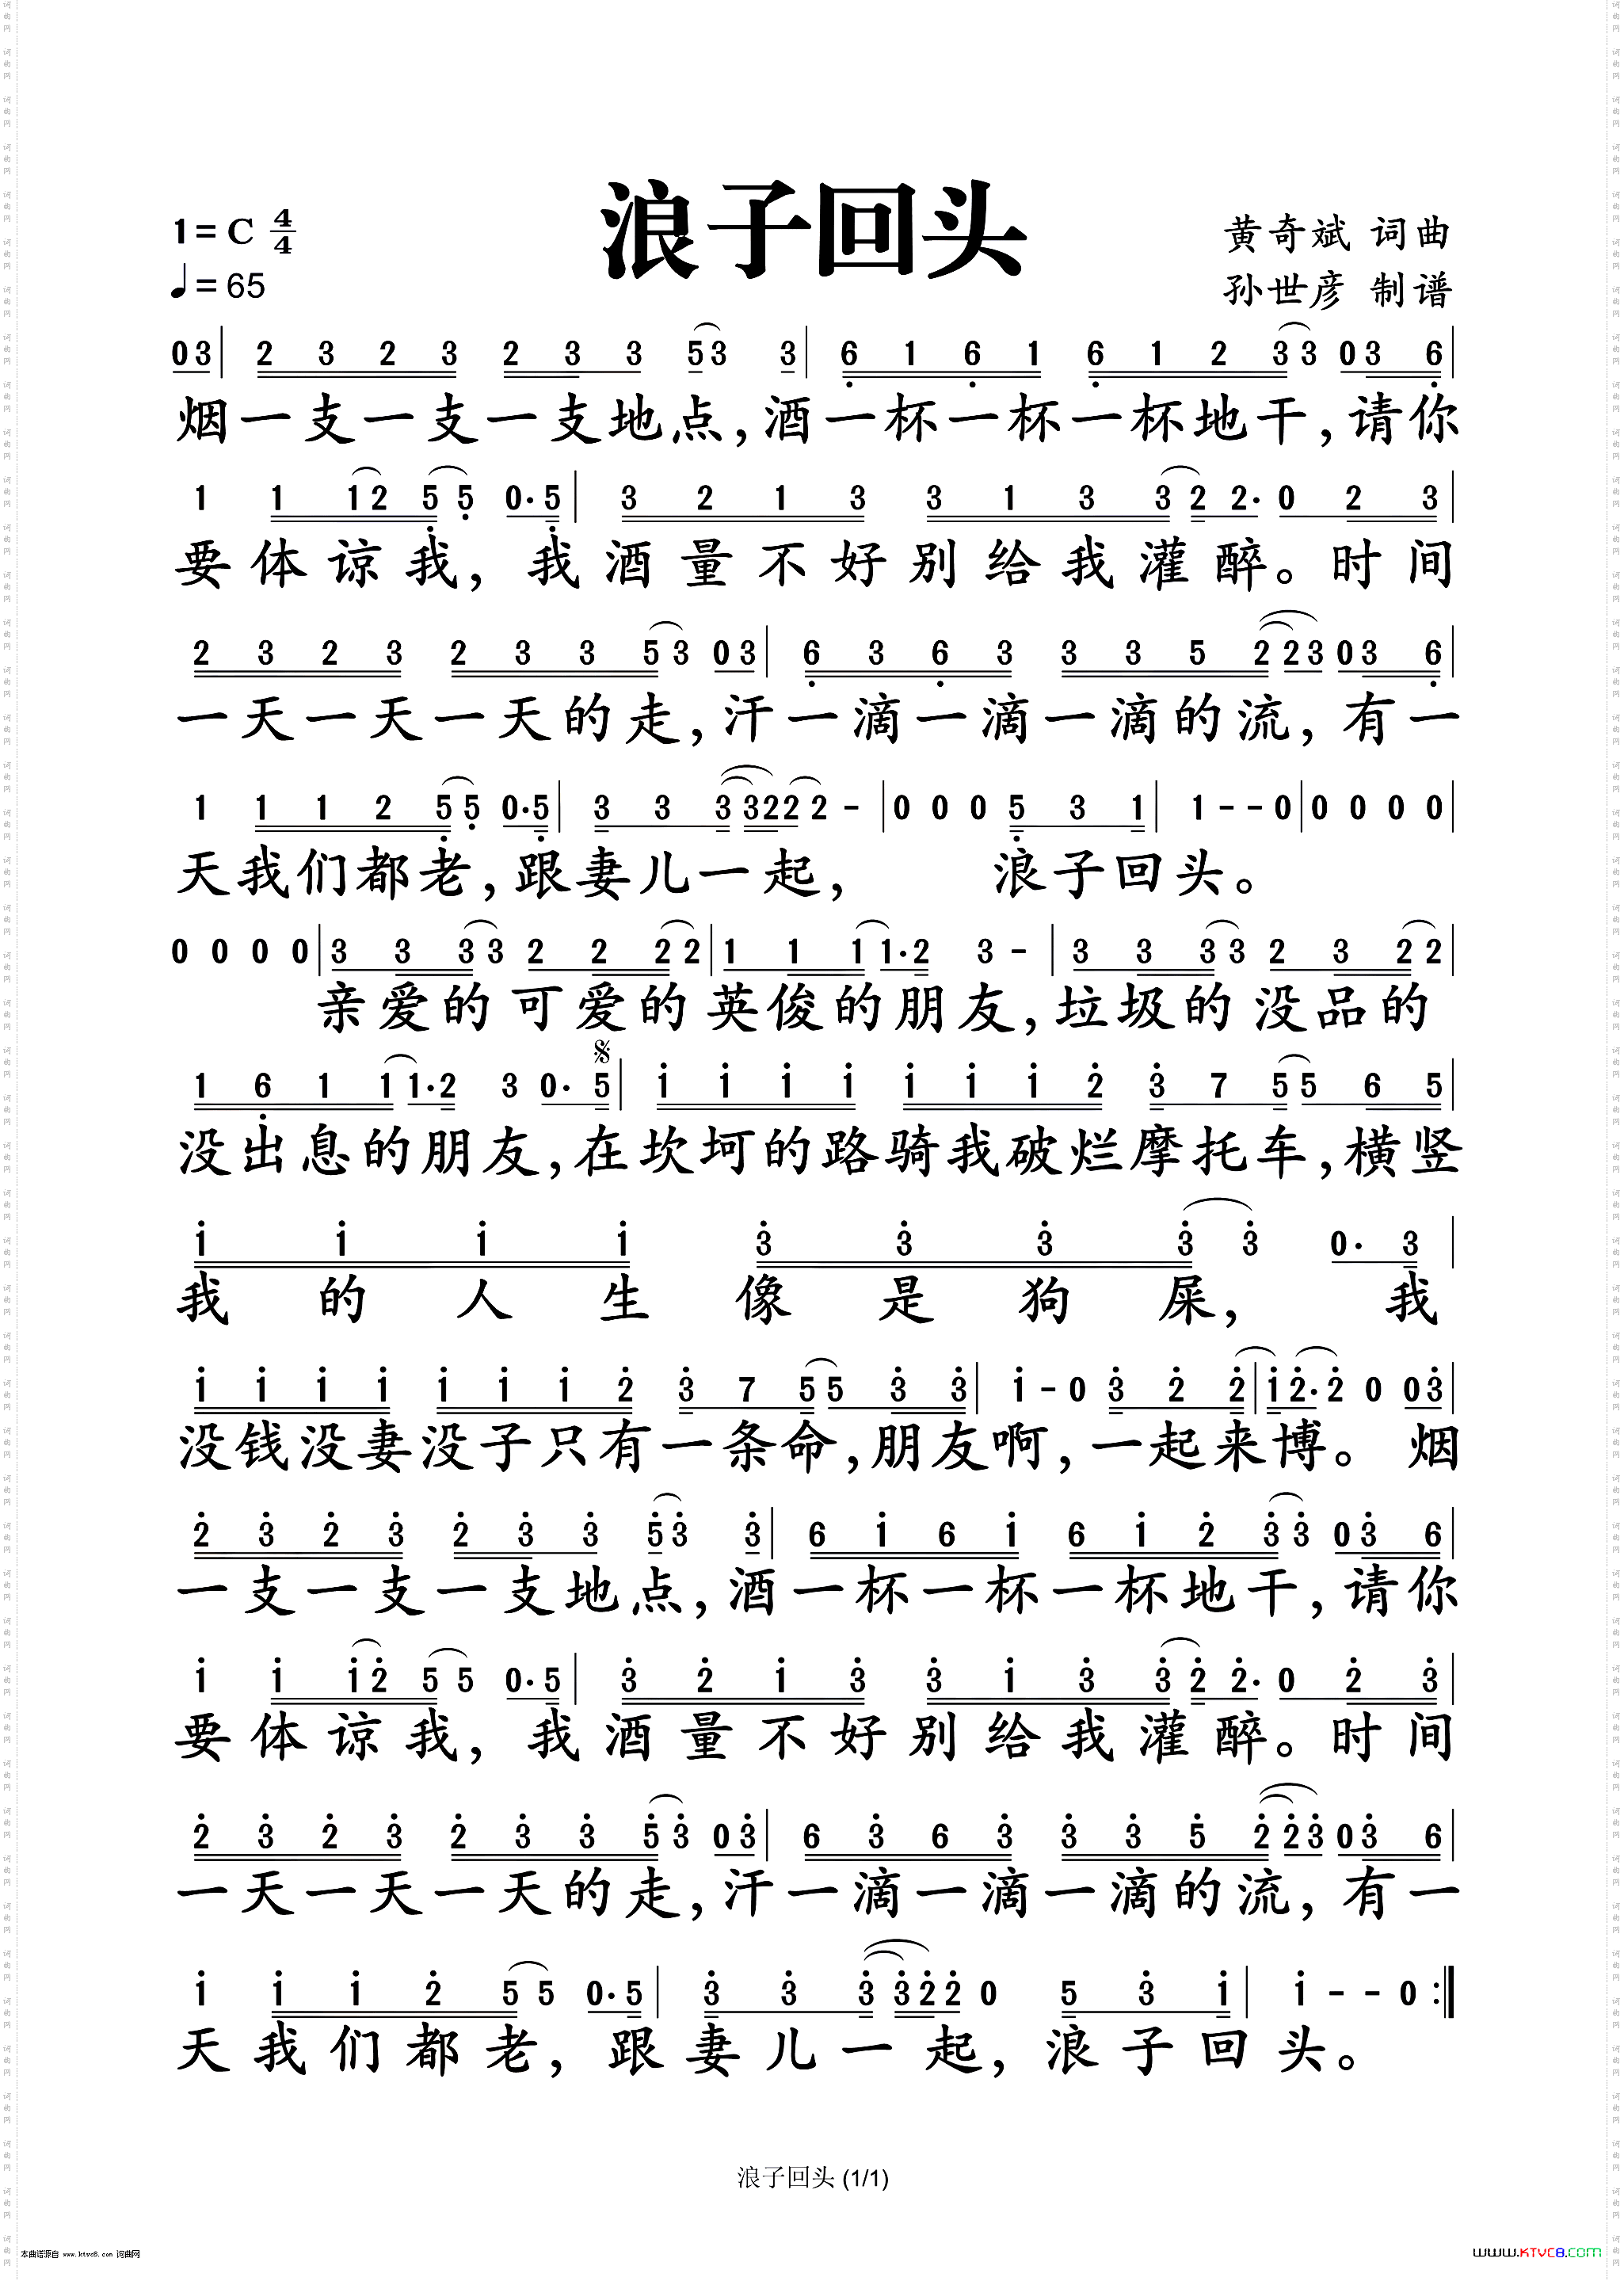 浪子回头
1=C 4/4
♩=65
黄奇斌 词曲
孙世彦 制谱
03| 2 3 2 3 2 3 3 53 3| 6 1 6 1 6 1 2 3 3 03 6|
烟一支一支一支地点,酒一杯一杯一杯地干,请你
1 1 12 5 5 0·5| 3 2 1 3 3 1 3 32 2· 0 2 3|
要体谅我,我酒量不好别给我灌醉。时间
2 3 2 3 2 3 3 5 3 03| 6 3 6 3 3 3 5 2 23 03 6|
一天一天一天的走,汗一滴一滴一滴的流,有一
1 1 1 2 5 5 0·5| 3 3 3 322 2 -| 0 0 0 5 3 1| 1 - - 0| 0 0 0 0|
天我们都老,跟妻儿一起,浪子回头。
0 0 0 0| 3 3 3 3 2 2 2 2| 1 1 1 1·2 3 -| 3 3 3 3 2 3 2 2|
亲爱的可爱的英俊的朋友,垃圾的没品的
𝄋
1 6 1 1 1·2 3 0· 5| 1 1 1 1 1 1 1 2 3 7 5 5 6 5|
没出息的朋友,在坎坷的路骑我破烂摩托车,横竖
1 1 1 1 3 3 3 3 3 0· 3|
我的人生像是狗屎,我
1 1 1 1 1 1 1 2 3 7 5 5 3 3| 1 - 0 3 2 2| 1 2· 2 0 03|
没钱没妻没子只有一条命,朋友啊,一起来博。烟
2 3 2 3 2 3 3 5 3 3| 6 1 6 1 6 1 2 3 3 03 6|
一支一支一支地点,酒一杯一杯一杯地干,请你
1 1 12 5 5 0·5| 3 2 1 3 3 1 3 32 2· 0 2 3|
要体谅我,我酒量不好别给我灌醉。时间
2 3 2 3 2 3 3 5 3 03| 6 3 6 3 3 3 5 2 23 03 6|
一天一天一天的走,汗一滴一滴一滴的流,有一
1 1 1 2 5 5 0·5| 3 3 3 322 0 5 3 1| 1 - - 0 :|
天我们都老,跟妻儿一起,浪子回头。
浪子回头 (1/1)
本曲谱源自 www.ktvc8.com 词曲网
WWW.KTVC8.COM